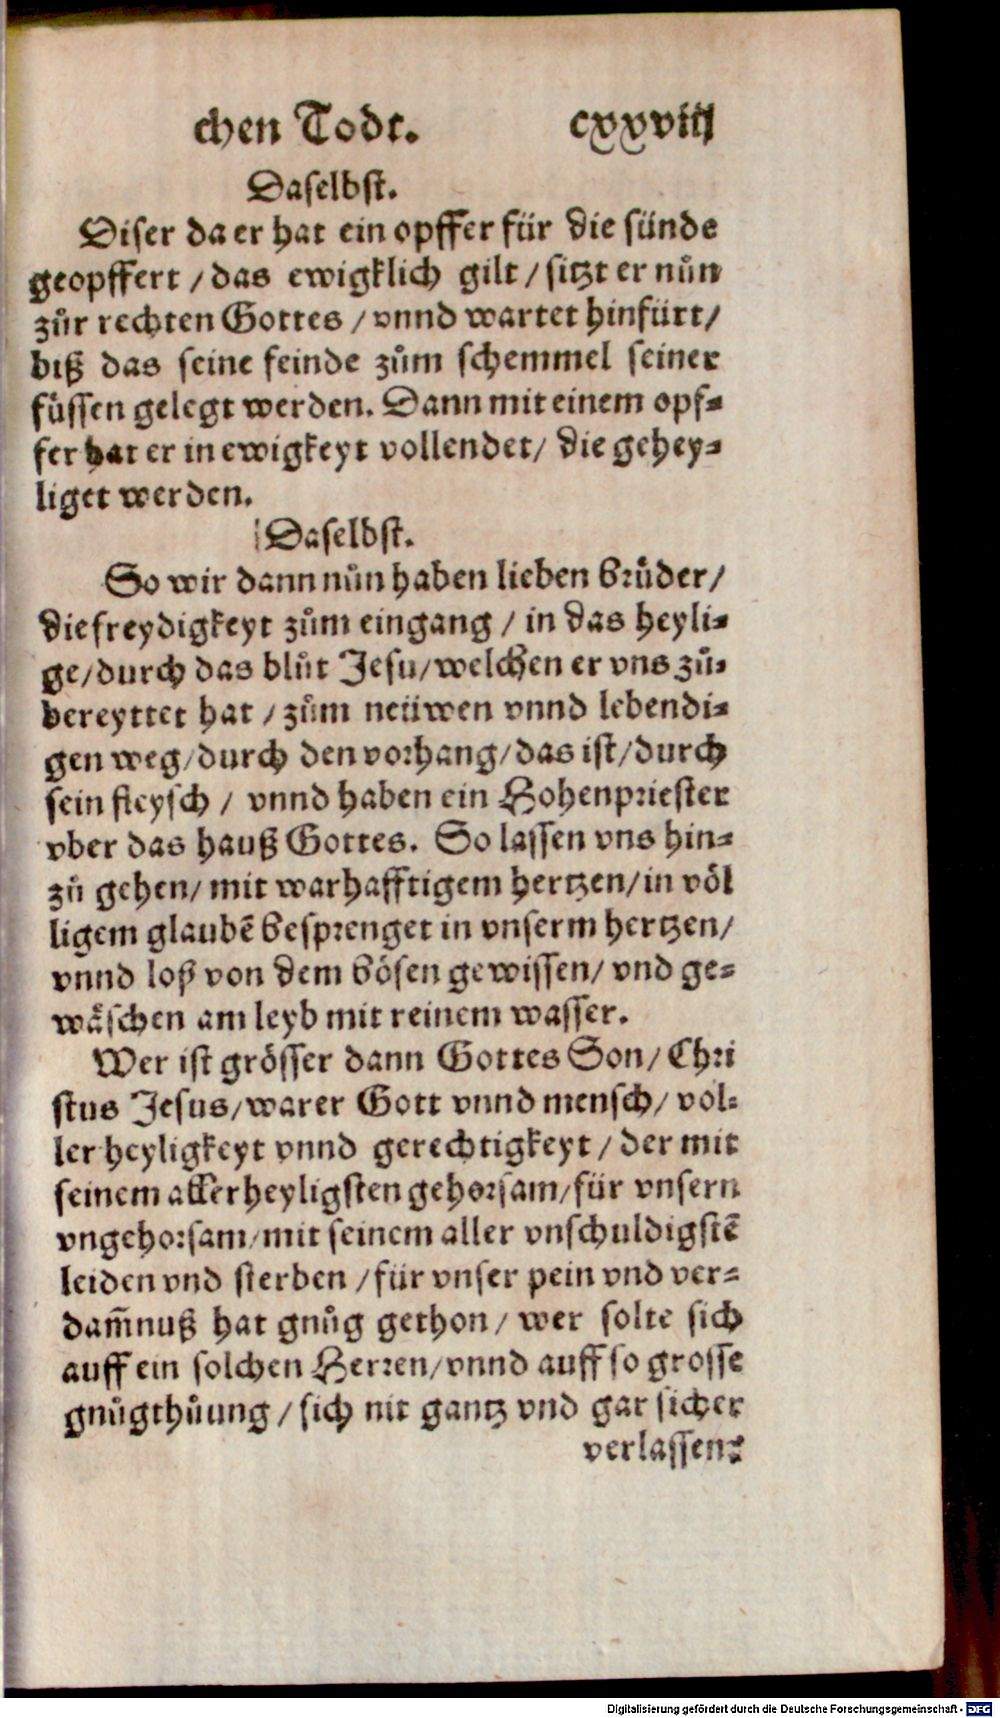 chen Todt. cxxviij
Daselbst.
Diser da er hat ein opffer für die sünde
geopffert / das ewigklich gilt / sitzt er nůn
zůr rechten Gottes / vnnd wartet hinfürt /
biß das seine feinde zům schemmel seiner
füssen gelegt werden. Dann mit einem opf⸗
fer hat er in ewigkeyt vollendet / die gehey⸗
liget werden.
Daselbst.
So wir dann nůn haben lieben brůder /
die freydigkeyt zům eingang / in das heyli⸗
ge / durch das blůt Jesu / welchen er vns zů⸗
bereyttet hat / zům neüwen vnnd lebendi⸗
gen weg / durch den vorhang / das ist / durch
sein fleysch / vnnd haben ein Hohenpriester
vber das hauß Gottes. So lassen vns hin⸗
zů gehen / mit warhafftigem hertzen / in völ
ligem glaubē besprenget in vnserm hertzen /
vnnd loß von dem bösen gewissen / vnd ge⸗
wäschen am leyb mit reinem wasser.
Wer ist grösser dann Gottes Son / Chri
stus Jesus / warer Gott vnnd mensch / vol⸗
ler heyligkeyt vnnd gerechtigkeyt / der mit
seinem allerheyligsten gehorsam / für vnsern
vngehorsam / mit seinem aller vnschuldigstē
leiden vnd sterben / für vnser pein vnd ver⸗
dam̄nuß hat gnůg gethon / wer solte sich
auff ein solchen Herren / vnnd auff so grosse
gnůgthůung / sich nit gantz vnd gar sicher
verlassen?
Digitalisierung gefördert durch die Deutsche Forschungsgemeinschaft - DFG